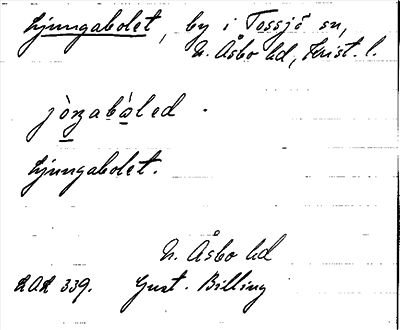 Ljungabolet, by i Tossjö sn,
N. Åsbo hd, Krist. l.
Ljungabolet.
N. Åsbo hd
339. Gust. Billing